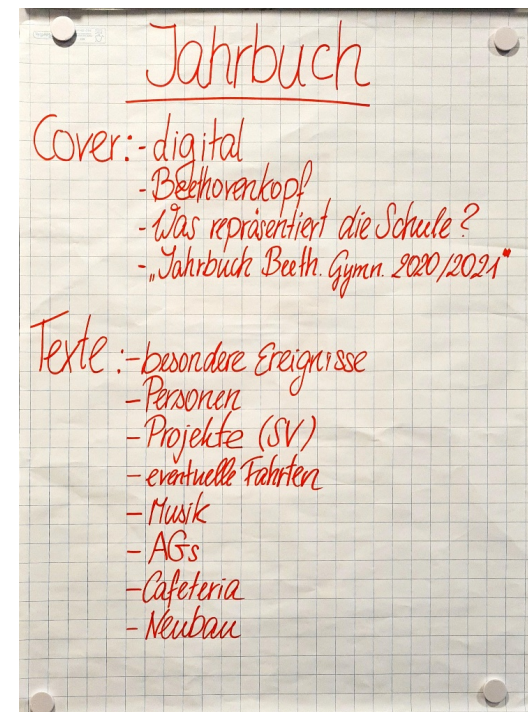 Jahrbuch
Cover:-digital
-Beethovenkopf
-Was repräsentiert die Schule?
-„Jahrbuch Beeth. Gymn. 2020/2021"
Texte:-besondere Ereignisse
-Personen
-Projekte (SV)
-eventuelle Fahrten
-Musik
-AGs
-Cafeteria
-Neubau